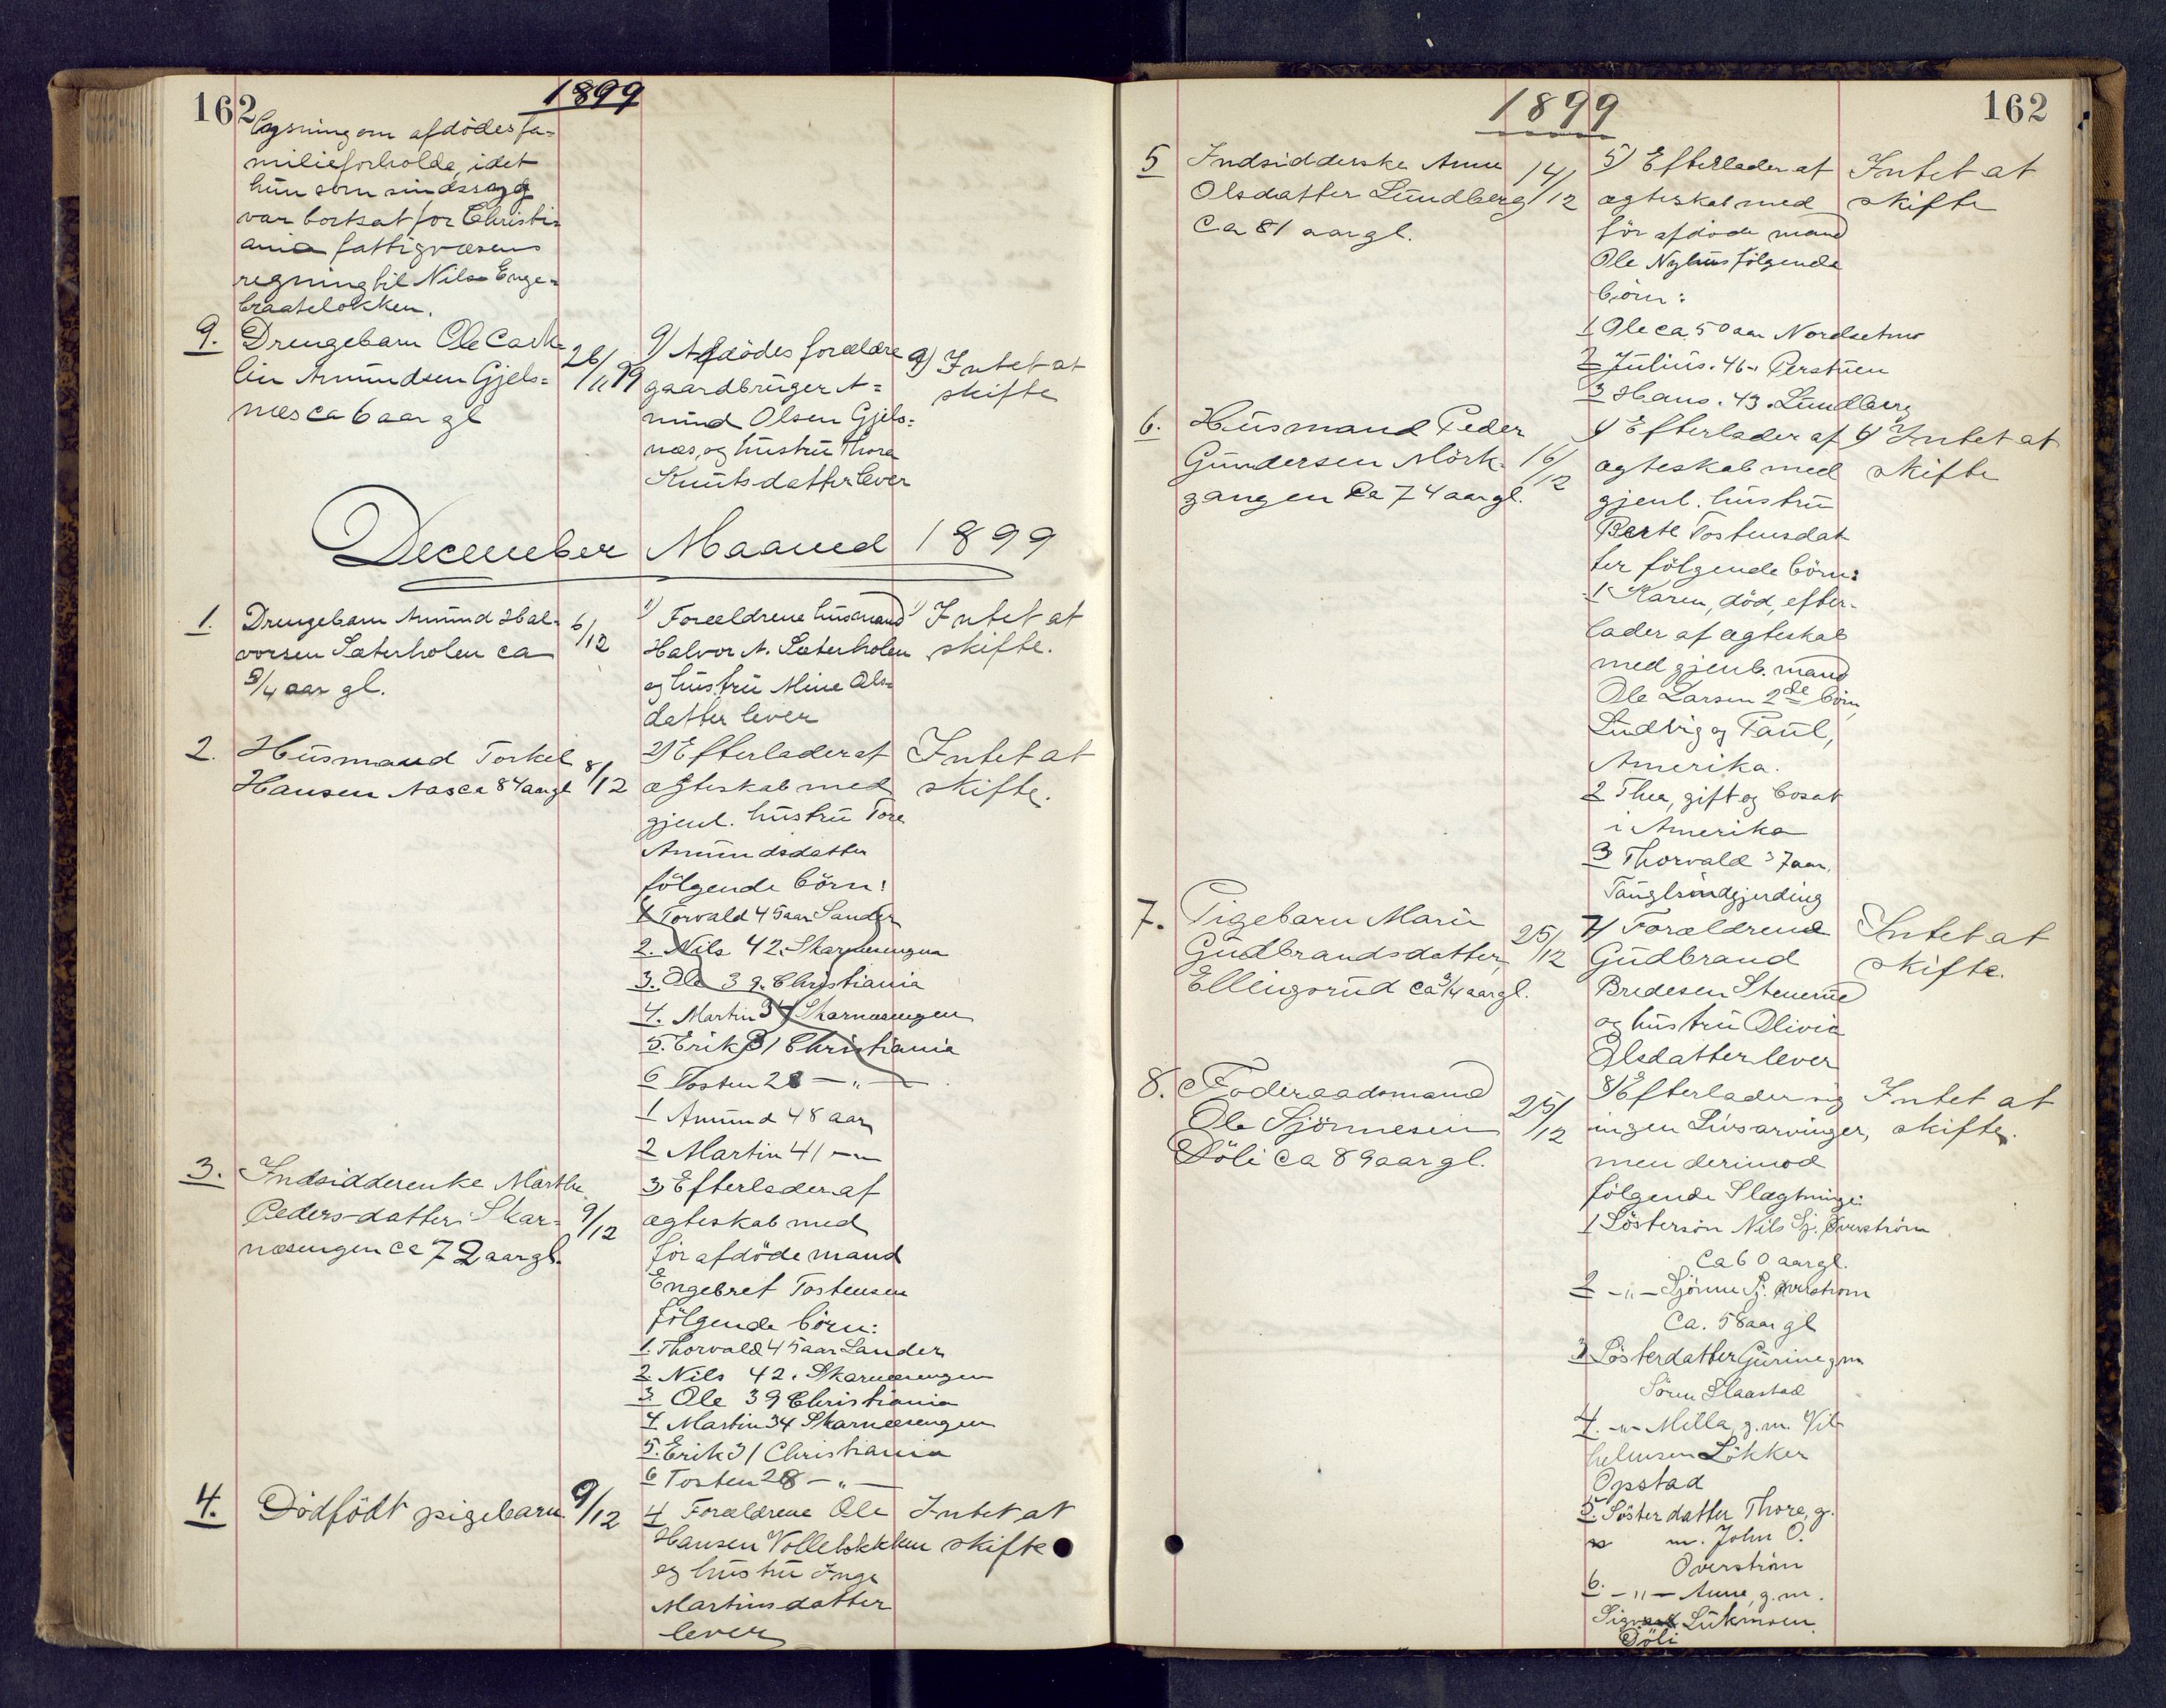 162
1899
lysning om afdödes fa-
milieforholde, idet
hun som sindssyg
var bortsat for Christi-
ania fattigvæsens
regning til Nils Enge-
braateløkken.
9. Drengebarn Ole Cark-
lin Amundsen Gjels-
næs ca 6 aar gl
26/11 99
9) Afdödes forældre
gaardbruger A-
mund Olsen Gjels-
næs, og hustru Thora
Knutsdatter lever
9) Intet at
skifte
December Maaned 1899
1. Drengebarn Amund Hal-
vorsen Sæterholen ca
3/4 aar gl.
6/12
1) Forældrene husmand
Halvor A. Sæterholen
og hustru Mine Ols-
datter lever
1) Intet at
skifte.
2. Husmand Torkel
Hansen Aas ca 84 aar gl
8/12
2) Efterlader af
ægteskab med
gjenl. hustru Tore
Amundsdatter
følgende börn:
1 Torvald 45 aar Sander
2. Nils 42. Skarnæsengen
3. Ole 39. Christiania
4. Martin 34 Skarnæsengen
5. Erik 31 Christiania
6 Tosten 28 — " —
1 Amund 48 aar
2 Martin 41 — " —
Intet at
skifte.
3. Indsidderenke Marthe
Pedersdatter Skar-
næsengen ca 72 aar gl.
9/12
3) Efterlader af
ægteskab med
för afdöde mand
Engebret Tostensen
fölgende börn:
1. Thorvald 45 aar Sander
2. Nils 42. Skarnæsengen
3 Ole 39 Christiania
4 Martin 34 Skarnæsengen
5. Erik 31 Christiania
6 Tosten 28 — " —
4. Dödfödt pigebarn
9/12
4 Forældrene Ole
Hansen Volleløkken
og hustru Inga
Martinsdatter
lever
Intet at
skifte
1899
162
5 Indsidderske Anne
Olsdatter Lundberg
ca 81 aar gl.
14/12
5) Efterlader af
ægteskab med
för afdöde mand
Ole Nyhus fölgende
börn:
1 Ole ca 50 aar Nordsetmo
2 Julius. 46 " Perstuen
3 Hans. 43. Lundberg
Intet at
skifte
6. Husmand Peder
Gundersen Mörk-
gangen ca 74 aar gl.
16/12
6) Efterlader af
ægteskab med
gjenl. hustru
Berte Tostensdat
ter fölgende börn:
1 Karen, död, efter-
lader af ægteskab
med gjenl. mand
Ole Larsen 2de börn,
Ludvig og Paul,
Amerika.
2 Thea, gift og bosat
i Amerika
3 Thorvald 37 aar,
6) Intet at
skifte
7. Pigebarn Marie
Gudbrandsdatter
Ellingsrud ca 3/4 aar gl.
25/12
7) Forældrene
Gudbrand
Bredesen Stenerud
og hustru Olivia
Olsdatter lever
Intet at
skifte.
8. Föderaadsmand
Ole Sjönnesen
Döli ca 89 aar gl.
25/12
8) Efterlader sig
ingen Livsarvinger,
men derimod
fölgende Slægtninge:
1 Söstersön Nils Sj. Overström
ca 60 aar gl.
2 — " — Sjönne Sj. Overström
ca. 58 aar gl
3 Sösterdatter Gurine g m
Sören Slaastad
4. — " — Milla, g. m. Vil-
helmsen Lökker
Opstad
5. Sösterdatter Thore, g.
m. John O.
Overström
6. — " — Anne, g. m.
Döli
Intet at
skifte.